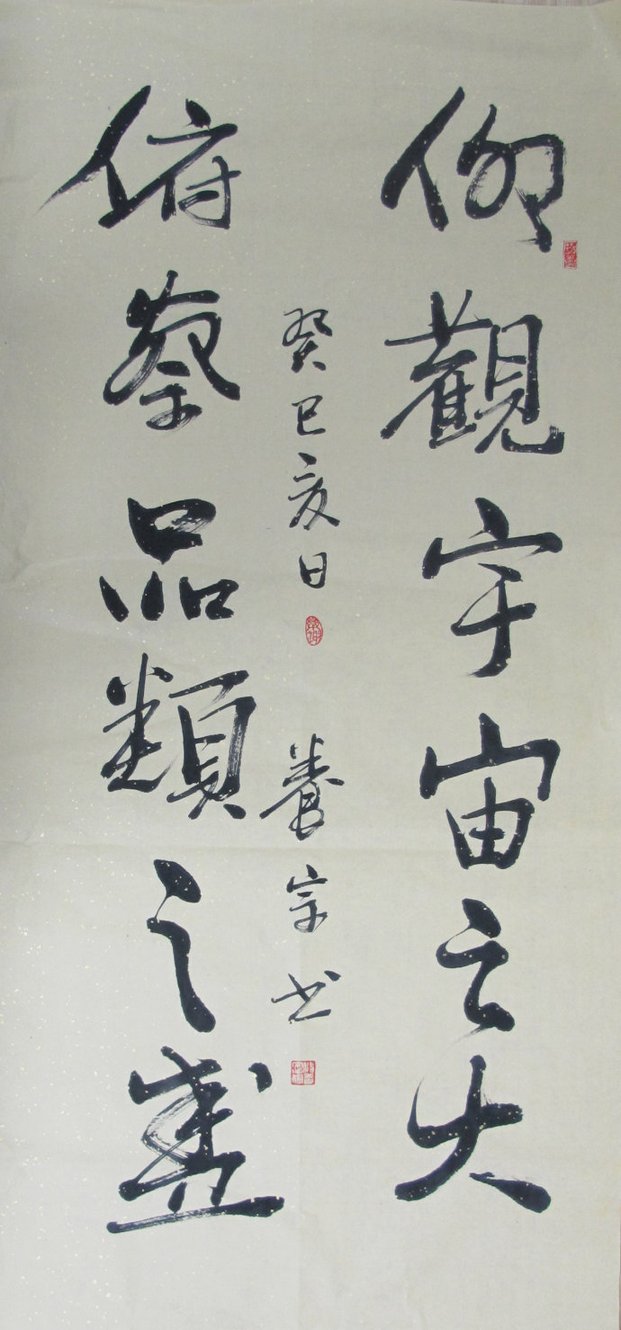 仰觀宇宙之大
癸巳夏日 養宗书
俯察品類之盛